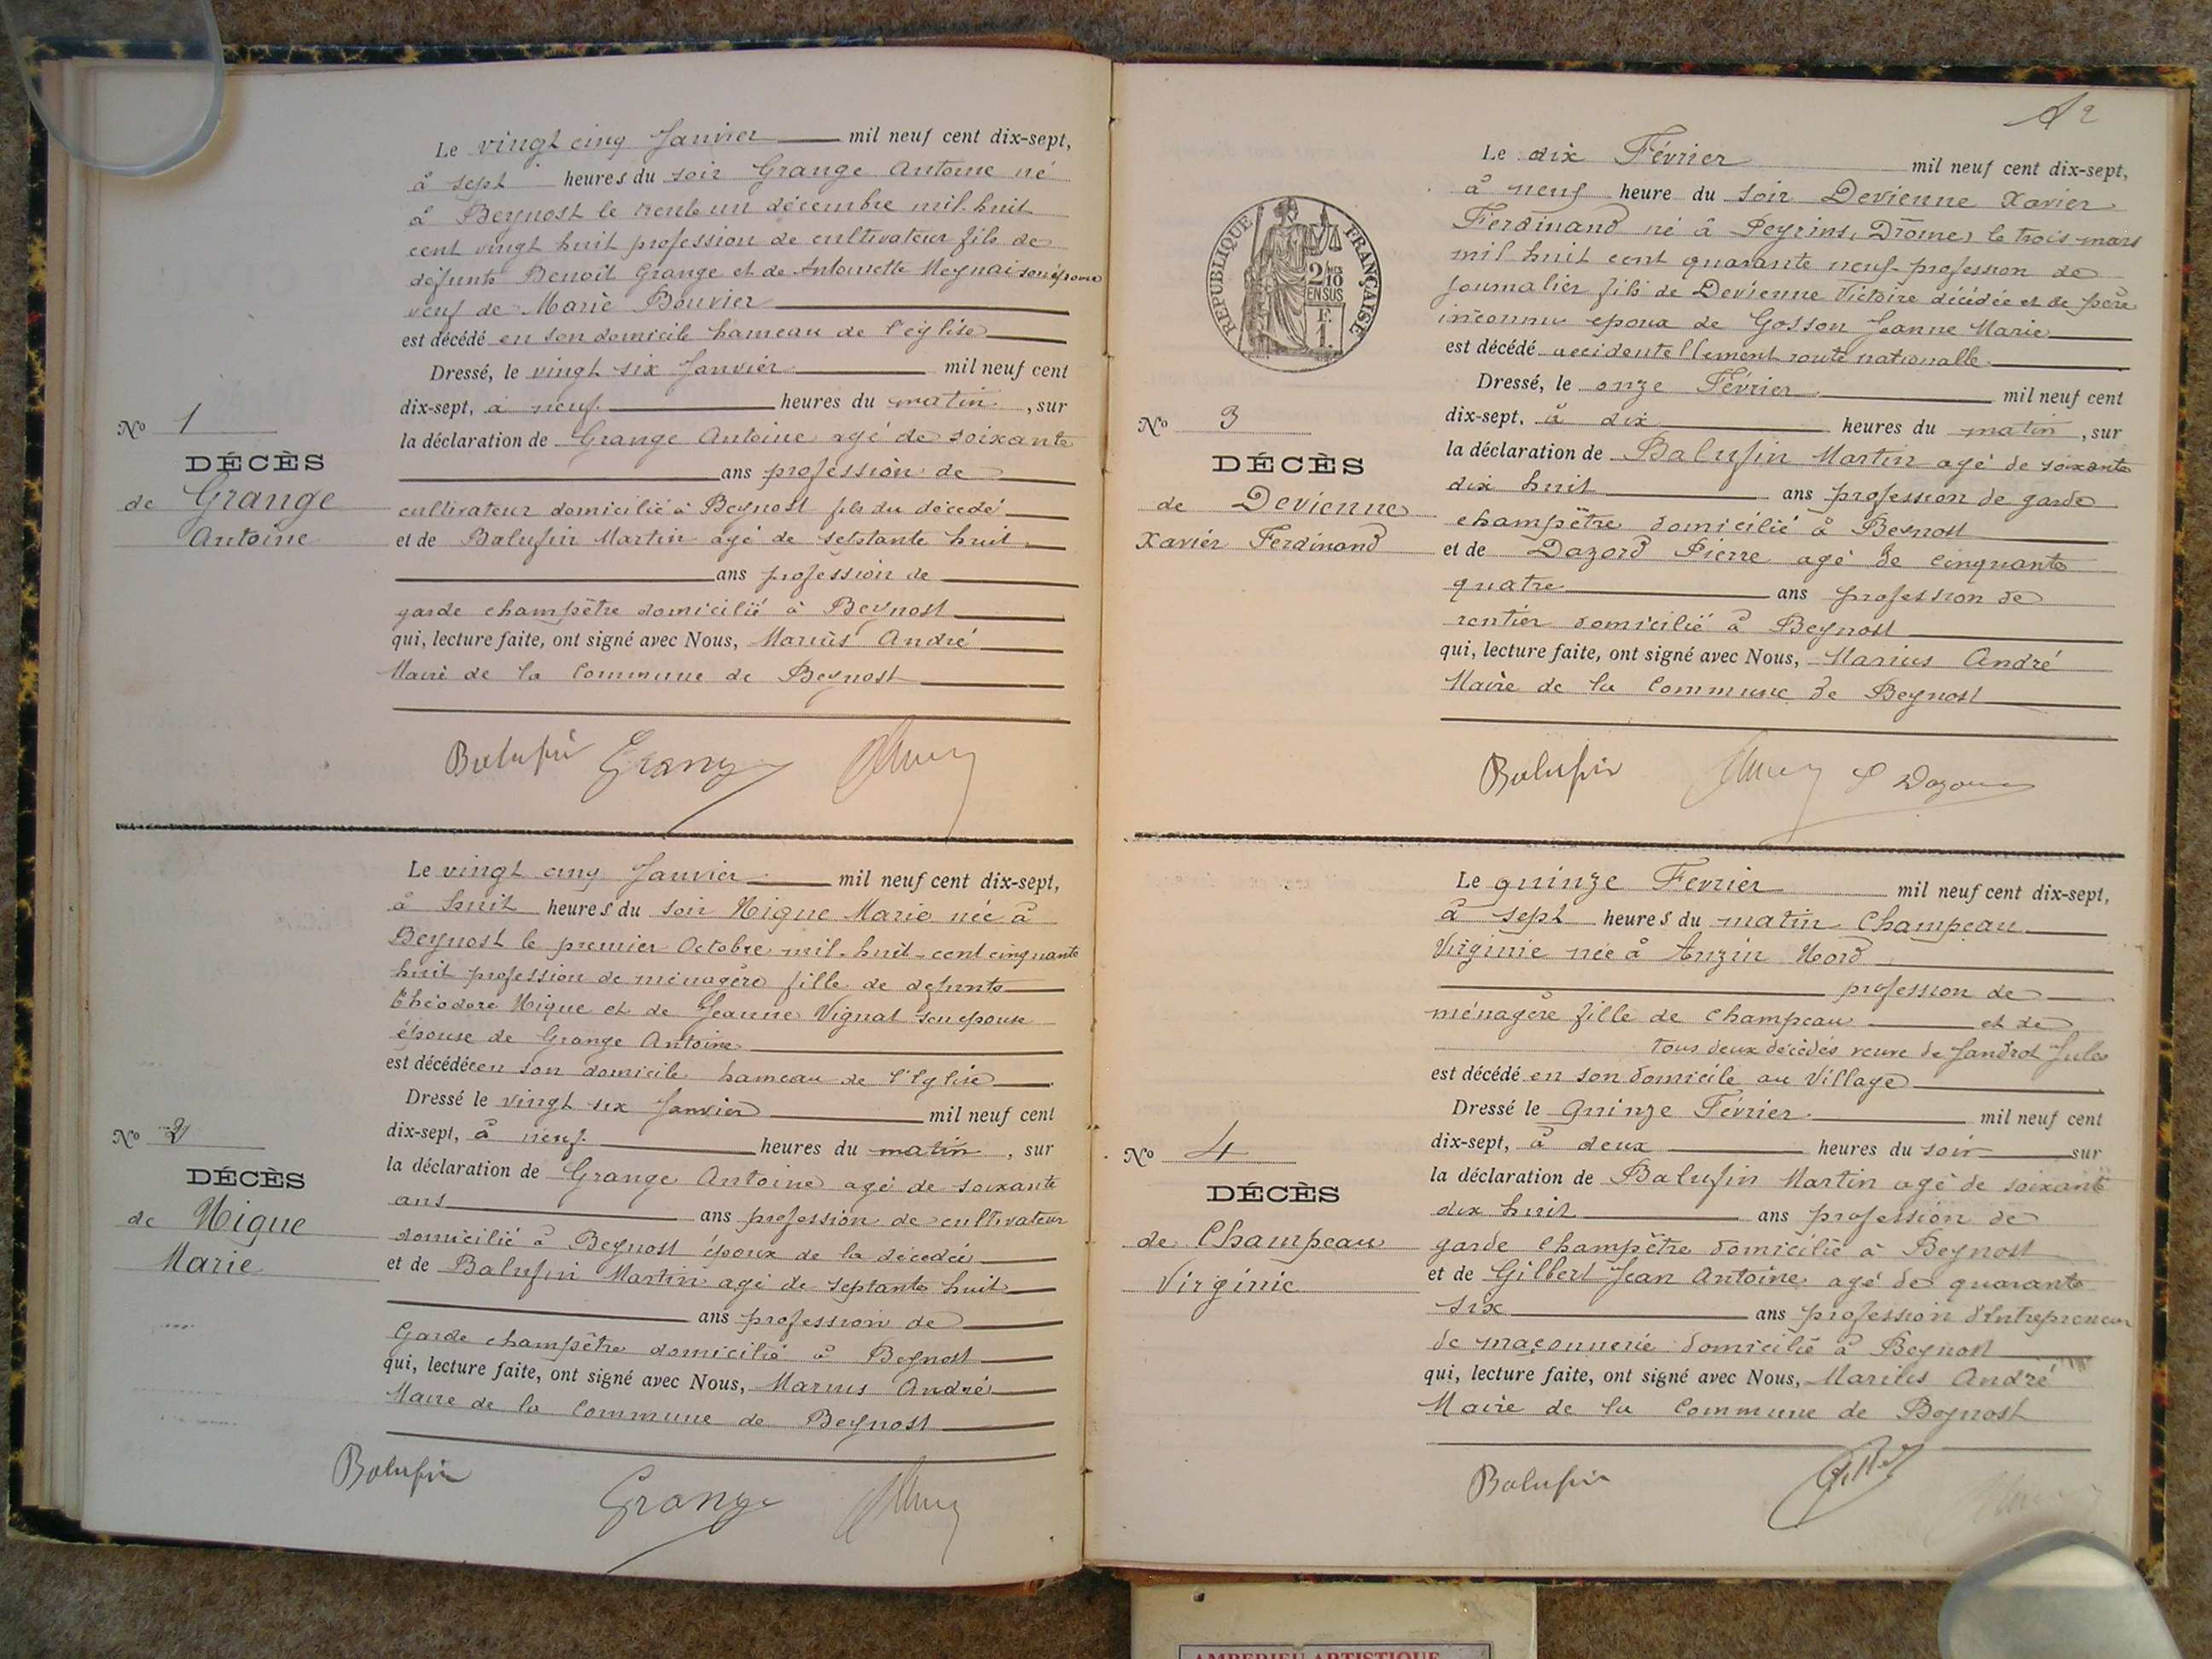 Le vingt cinq Janvier mil neuf cent dix-sept,
à sept heures du soir Grange Antoine né
à Beynost le trente un décembre mil huit
cent vingt huit profession de cultivateur fils de
défunts Benoit Grange et de Antoinette son épouse
veuf de Marie Bouvier
est décédé en son domicile hameau de l'église
Dressé, le vingt six Janvier mil neuf cent
dix-sept, à neuf heures du matin, sur
la déclaration de Grange Antoine agé de soixante
ans profession de
cultivateur domicilié à Beynost fils du décédé
et de Balufin Martin agé de septante huit
ans profession de
garde champêtre domicilié à Beynost
qui, lecture faite, ont signé avec Nous, Marius André
Maire de la Commune de Beynost
No 1
DÉCÈS
de Grange
Antoine
Balufin Grange
Le vingt cinq Janvier mil neuf cent dix-sept,
à huit heures du soir Nique Marie née à
Beynost le premier Octobre mil huit cent cinquante
huit profession de ménagère fille de defunts
Théodore Nique et de Jeanne Vignat son epouse
épouse de Grange Antoine
est décédée en son domicile hameau de l'Eglise
Dressé le vingt six Janvier mil neuf cent
dix-sept, à neuf heures du matin, sur
la déclaration de Grange Antoine agé de soixante
ans ans profession de cultivateur
domicilié à Beynost époux de la décedée
et de Balufin Martin agé de septante huit
ans profession de
Garde champêtre domicilié à Beynost
qui, lecture faite, ont signé avec Nous, Marius André
Maire de la Commune de Beynost
No 2
DÉCÈS
de Nique
Marie
Balufin
Grange
2
Le dix Février mil neuf cent dix-sept,
à neuf heure du soir Devienne Xavier
Ferdinand né à Peyrins, Drôme, le trois mars
mil huit cent quarante neuf profession de
journalier fils de Devienne Victoire décédée et de père
inconnu epoux de Gosson Jeanne Marie
est décédé accidentellement route nationalle
Dressé, le onze Février mil neuf cent
dix-sept, à dix heures du matin, sur
la déclaration de Balufin Martin agé de soixante
dix huit ans profession de garde
champêtre domicilié à Beynost
et de Dazord Pierre agé de cinquante
quatre ans profession de
rentier domicilié à Beynost
qui, lecture faite, ont signé avec Nous, Marius André
Maire de la Commune de Beynost
RÉPUBLIQUE FRANÇAISE
2/10 MES
EN SUS
F.
1.
No 3
DÉCÈS
de Devienne
Xavier Ferdinand
Balufin P Dazord
Le quinze Fevrier mil neuf cent dix-sept,
à sept heures du matin Champeau
Virginie née à Anzin Nord
profession de
ménagère fille de Champeau et de
tous deux décédés veuve de Jandrot Jules
est décédé en son domicile au Village
Dressé le Quinze Février mil neuf cent
dix-sept, à deux heures du soir sur
la déclaration de Balufin Martin agé de soixante
dix huit ans profession de
garde champêtre domicilié à Beynost
et de Gilbert Jean Antoine agé de quarante
six ans profession d'Entrepreneur
de maçonnerie domicilié à Beynost
qui, lecture faite, ont signé avec Nous, Marius André
Maire de la Commune de Beynost
No 4
DÉCÈS
de Champeau
Virginie
Balufin
AMBERIEU ARTISTIQUE